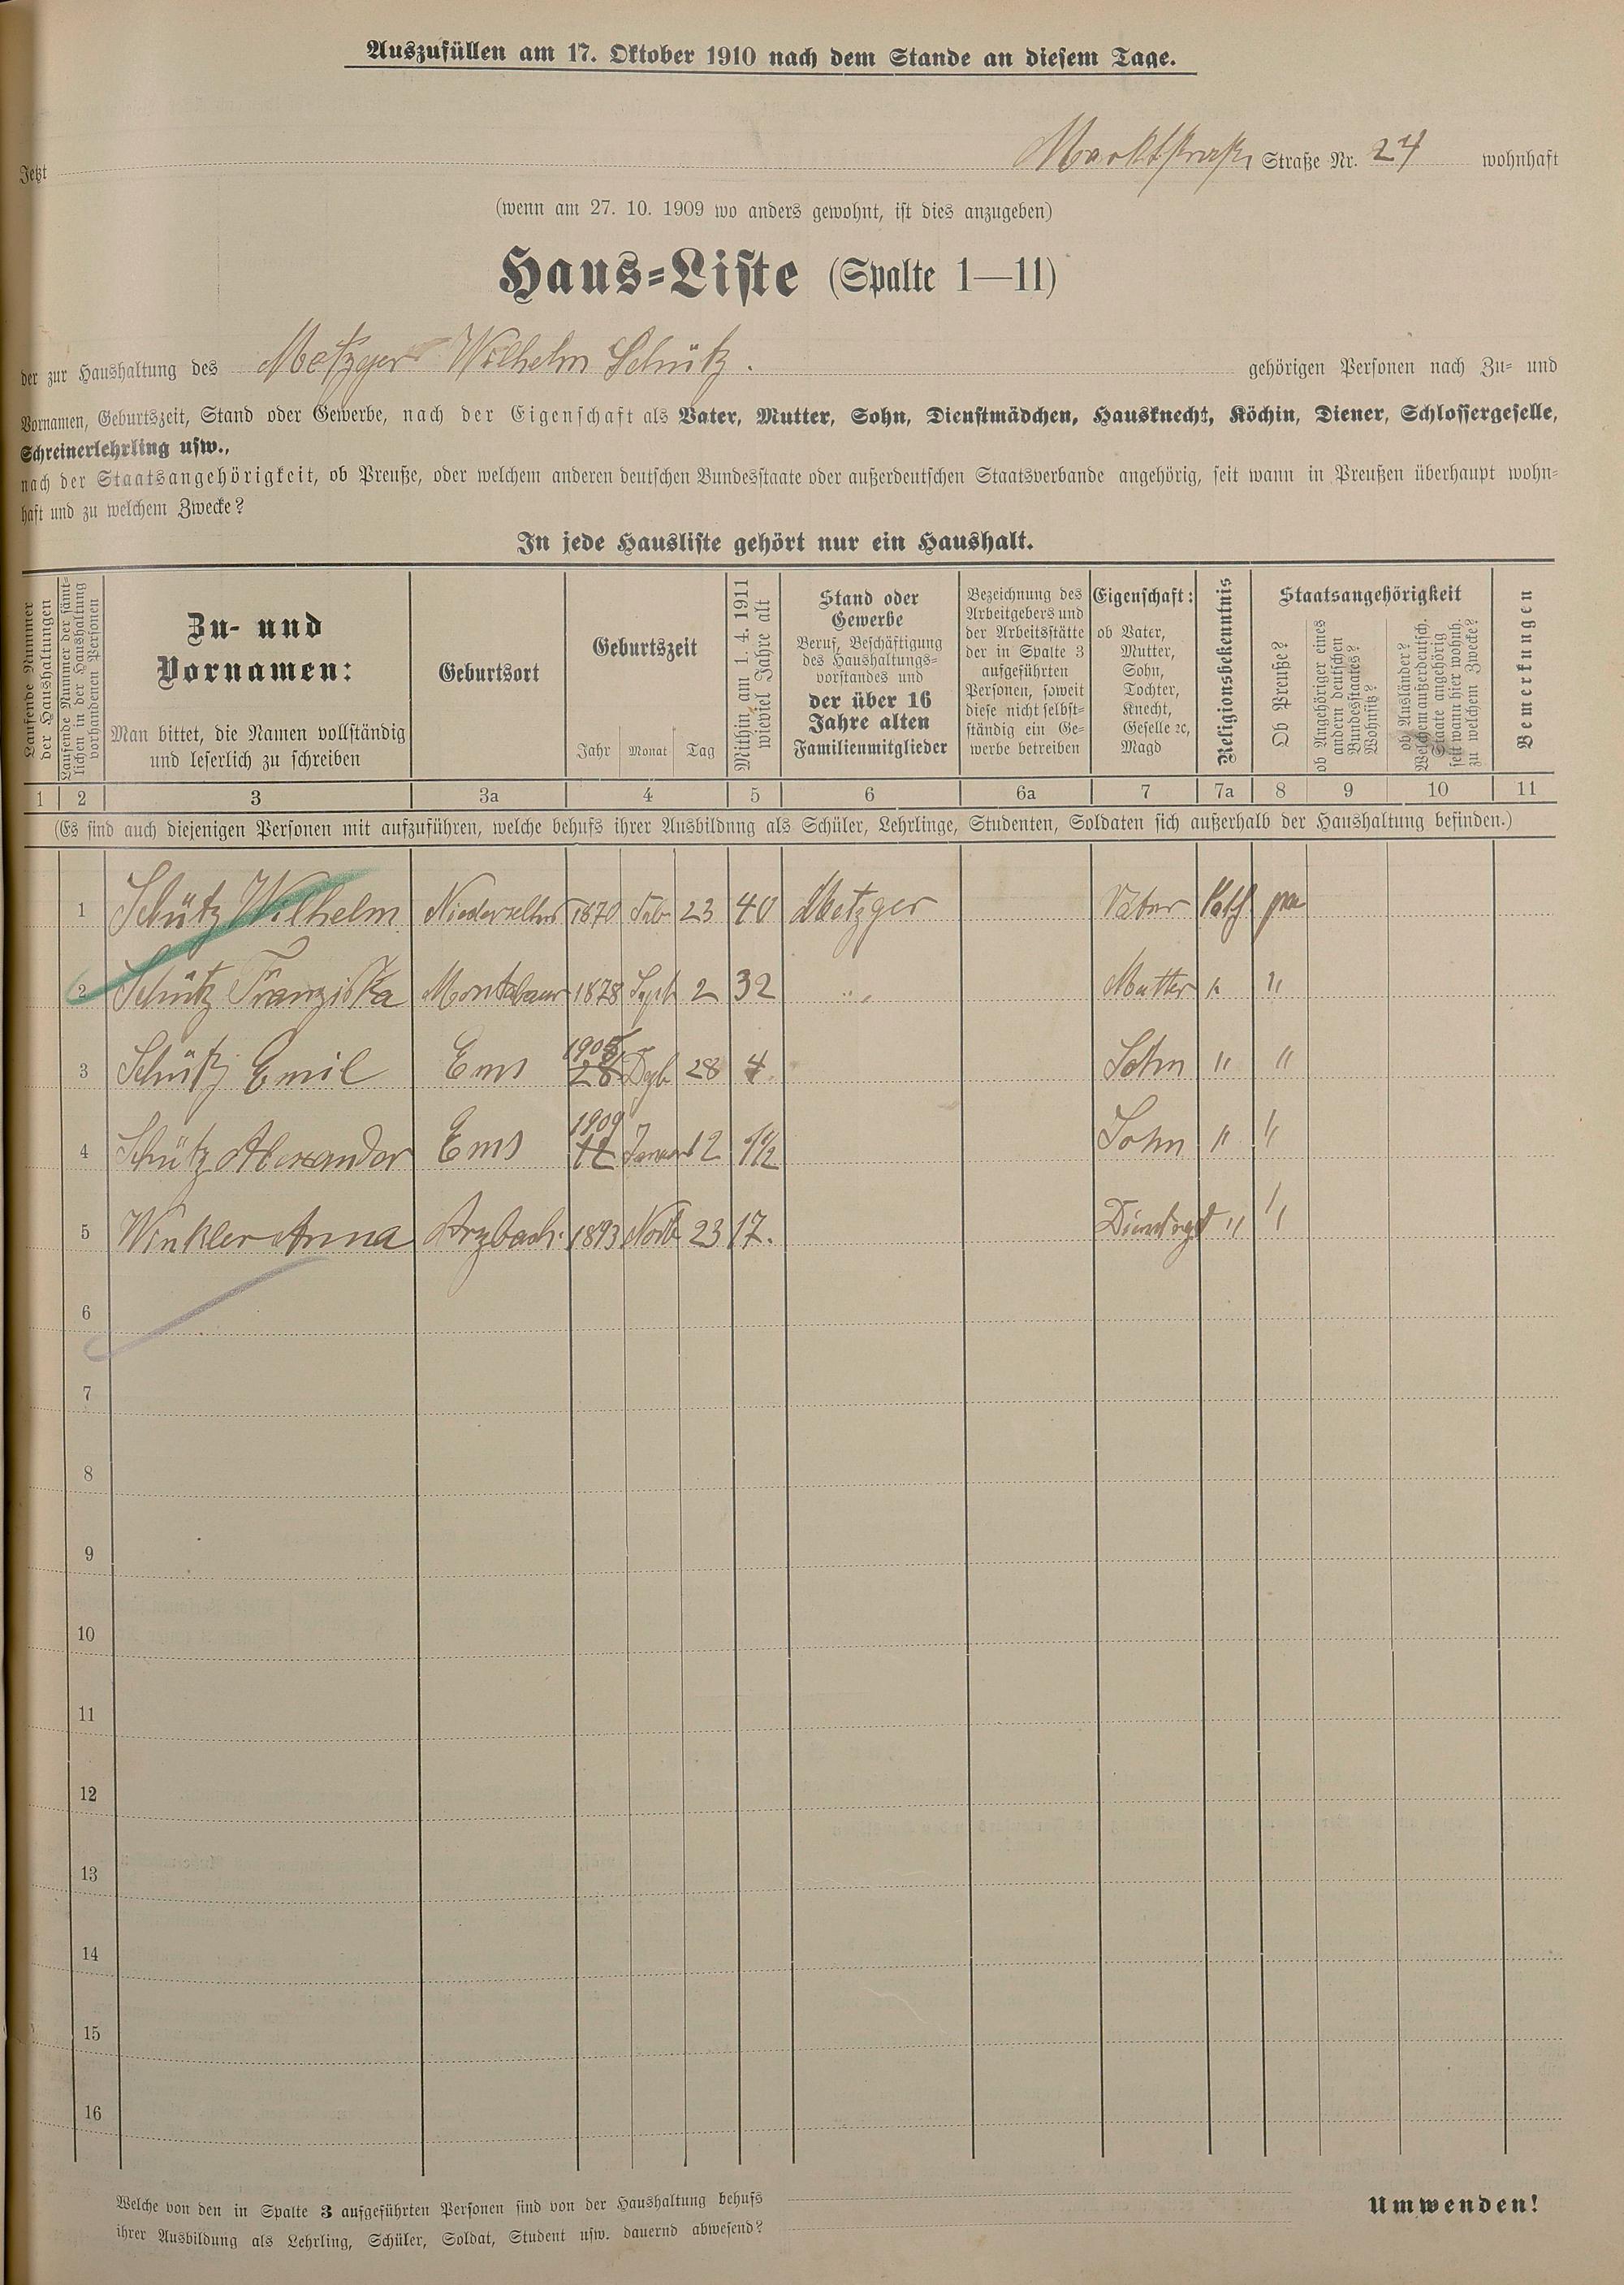 Auszufüllen am 17. Oktober 1910 nach dem Stande an diesem Tage.
Jetzt Marktstraße Straße Nr. 24 wohnhaft
(wenn am 27. 10. 1909 wo anders gewohnt, ist dies anzugeben)
Haus-Liste (Spalte 1—11)
der zur Haushaltung des Metzger Wilhelm Schütz. gehörigen Personen nach Zu- und
Vornamen, Geburtszeit, Stand oder Gewerbe, nach der Eigenschaft als Vater, Mutter, Sohn, Dienstmädchen, Hausknecht, Köchin, Diener, Schlossergeselle,
Schreinerlehrling usw.,
nach der Staatsangehörigkeit, ob Preuße, oder welchem anderen deutschen Bundesstaate oder außerdeutschen Staatsverbande angehörig, seit wann in Preußen überhaupt wohn-
haft und zu welchem Zwecke?
In jede Hausliste gehört nur ein Haushalt.
Laufende Nummer
der Haushaltungen
Laufende Nummer der sämt-
lichen in der Haushaltung
vorhandenen Personen
Zu- und
Vornamen:
Man bittet, die Namen vollständig
und leserlich zu schreiben
Geburtsort
Geburtszeit
Jahr Monat Tag
Mithin am 1. 4. 1911
wieviel Jahre alt
Stand oder
Gewerbe
Beruf, Beschäftigung
des Haushaltungs-
vorstandes und
der über 16
Jahre alten
Familienmitglieder
Bezeichnung des
Arbeitgebers und
der Arbeitsstätte
der in Spalte 3
aufgeführten
Personen, soweit
diese nicht selbst-
ständig ein Ge-
werbe betreiben
Eigenschaft:
ob Vater,
Mutter,
Sohn,
Tochter,
Knecht,
Geselle ec,
Magd
Religionsbekenntnis
Staatsangehörigkeit
Ob Preuße?
ob Angehöriger eines
andern deutschen
Bundesstaates?
Wohnsitz?
ob Ausländer?
Welchem außerdeutsch.
Staate angehörig
seit wann hier wohnh.
zu welchem Zwecke?
Bemerkungen
1 2 3 3a 4 5 6 6a 7 7a 8 9 10 11
(Es sind auch diejenigen Personen mit aufzuführen, welche behufs ihrer Ausbildung als Schüler, Lehrlinge, Studenten, Soldaten sich außerhalb der Haushaltung befinden.)
1 Schütz Wilhelm 1870 Feb 23 40 Metzger Vater Kath
2 Schütz Franziska Montabaur 1878 Sept 2 32 " Mutter " "
3 Schütz Emil Ems 1905 28 Dzb 28 4 Sohn " "
4 Schütz Alexander Ems 1909 12 Januar 12 1½ Sohn " "
5 Winkler Anna Arzbach 1893 Novb 23 17. " "
6
7
8
9
10
11
12
13
14
15
16
Welche von den in Spalte 3 aufgeführten Personen sind von der Haushaltung behufs
ihrer Ausbildung als Lehrling, Schüler, Soldat, Student usw. dauernd abwesend?
Umwenden!